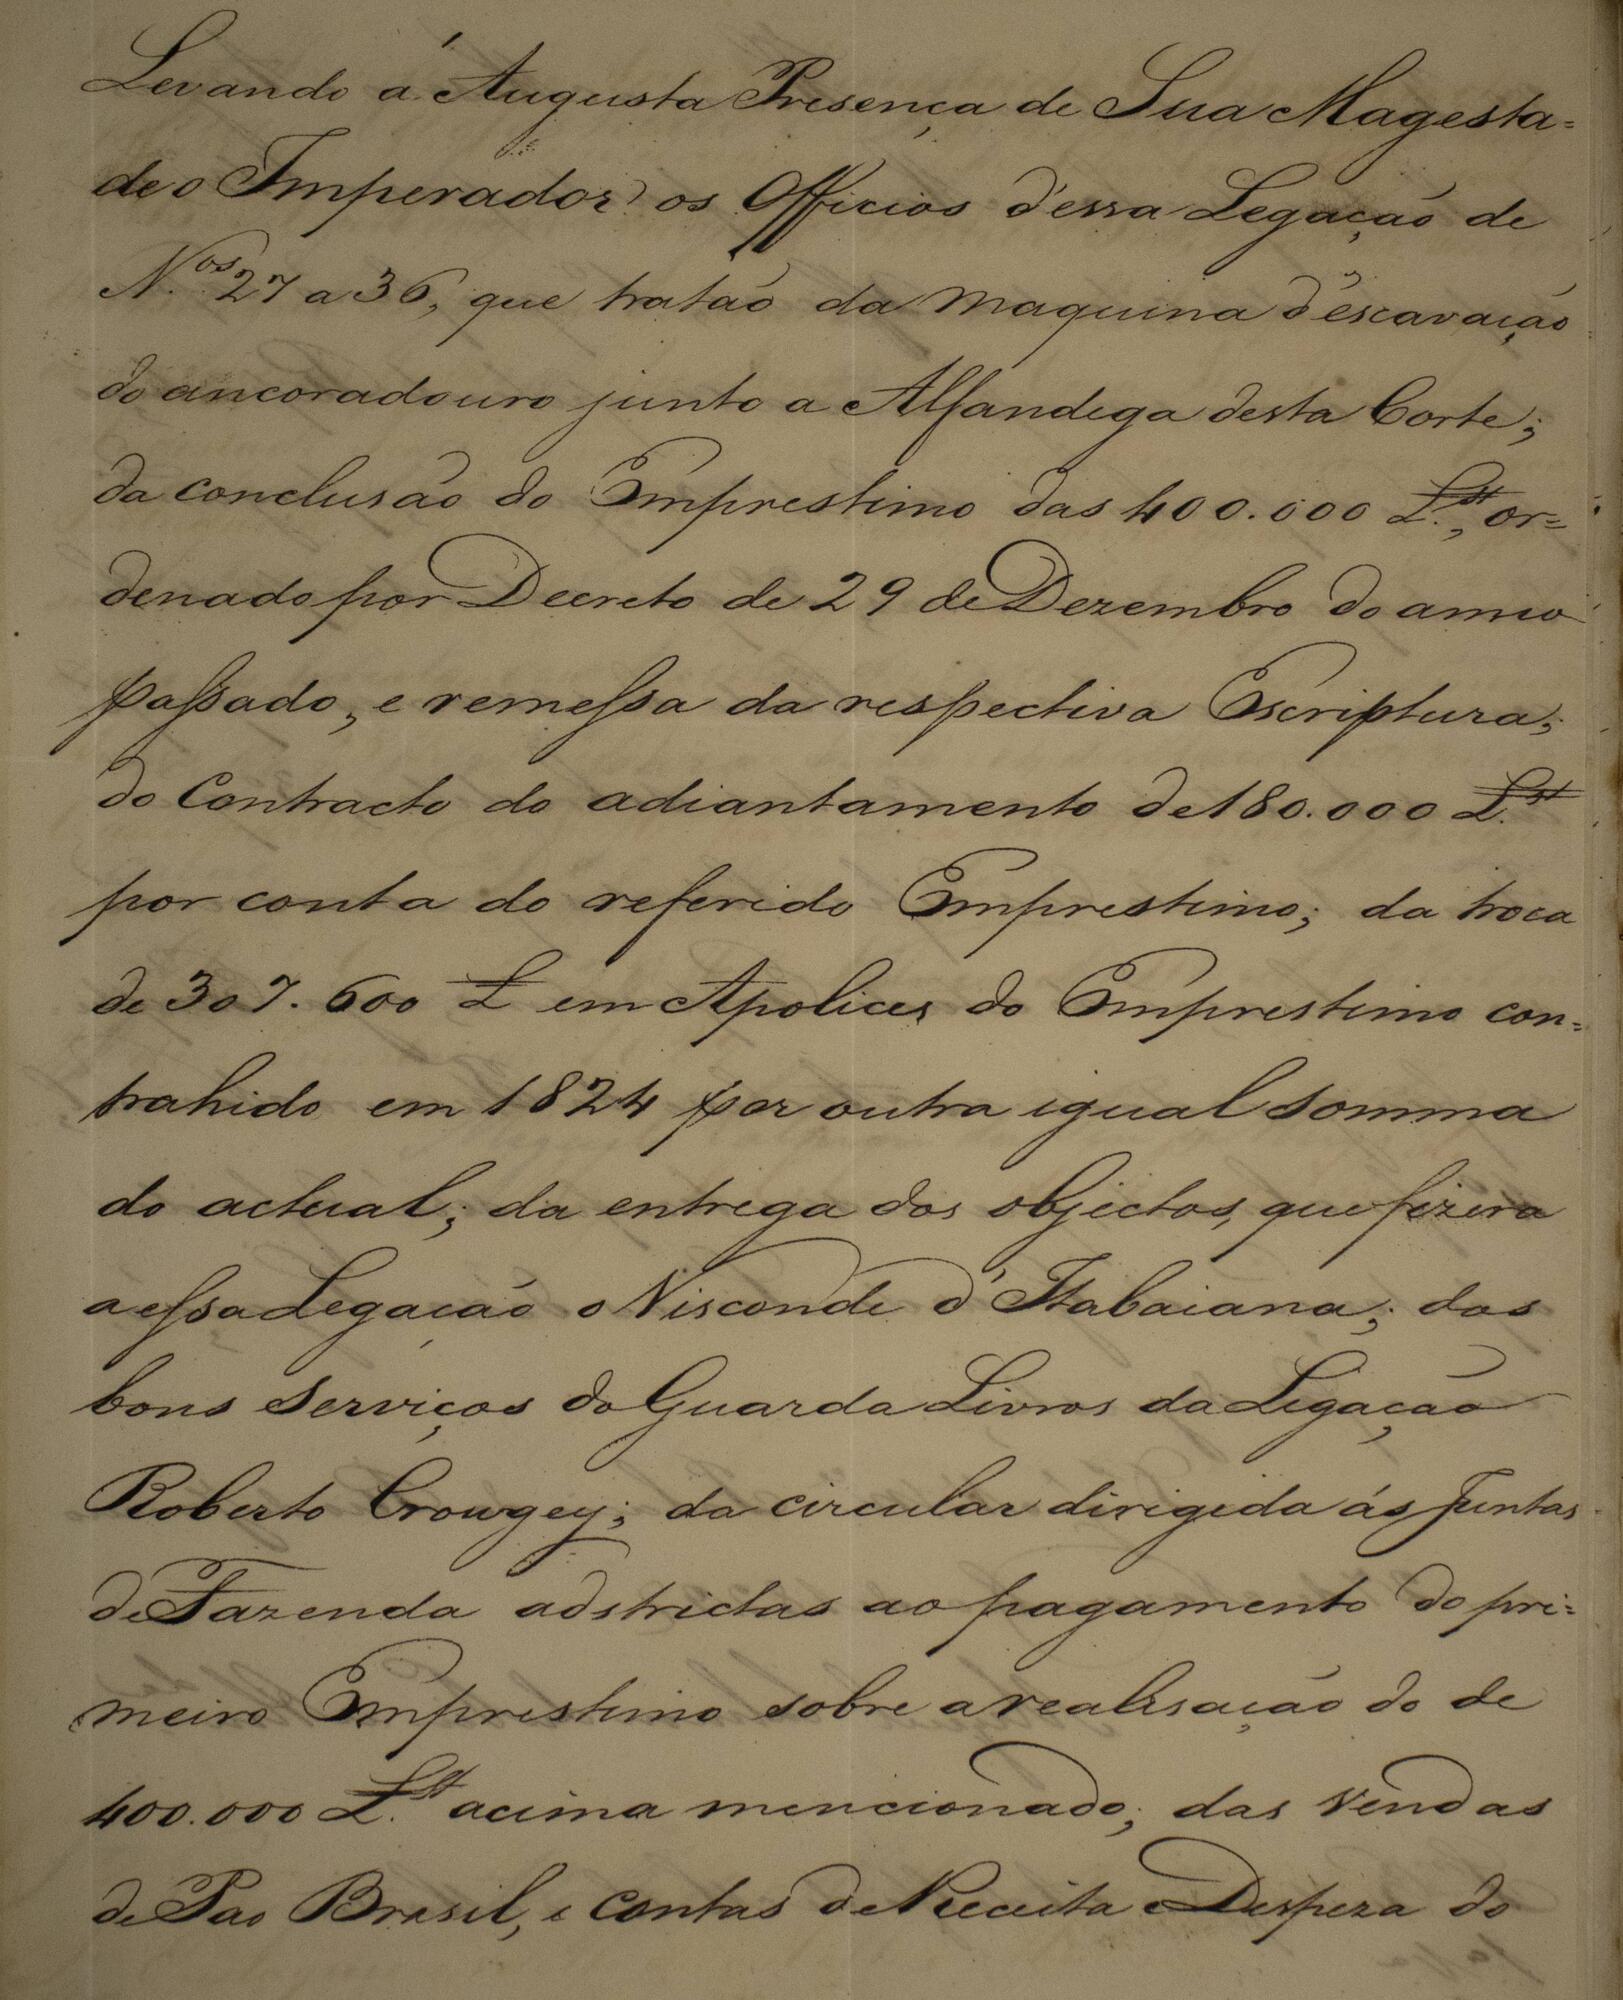 Levando á Augusta Presença de Sua Magesta=
de o Imperador os Officios d'essa Legação de
N.os 27 a 36, que tratão da maquina d'escavação
do ancoradouro junto a Alfandega desta Corte;
da conclusão do Emprestimo das 400.000 £.st, or=
denado por Decreto de 29 de Dezembro do anno
passado, e remessa da respectiva Escriptura;
do Contracto do adiantamento de 180.000 £.st
por conta do referido Emprestimo; da troca
de 307.600 £ em Apolices do Emprestimo con=
trahido em 1824 por outra igual somma
do actual; da entrega dos objectos, que fizera
a essa Legação o Visconde d'Itabaiana; dos
bons serviços do Guarda Livros da Legação
Roberto Crowgey; da circular dirigida ás Juntas
de Fazenda adstrictas ao pagamento do pri=
meiro Emprestimo sobre a realisação do de
400.000 £.st acima mencionado; das vendas
de Pao Brasil, e contas de Receita e Despeza do